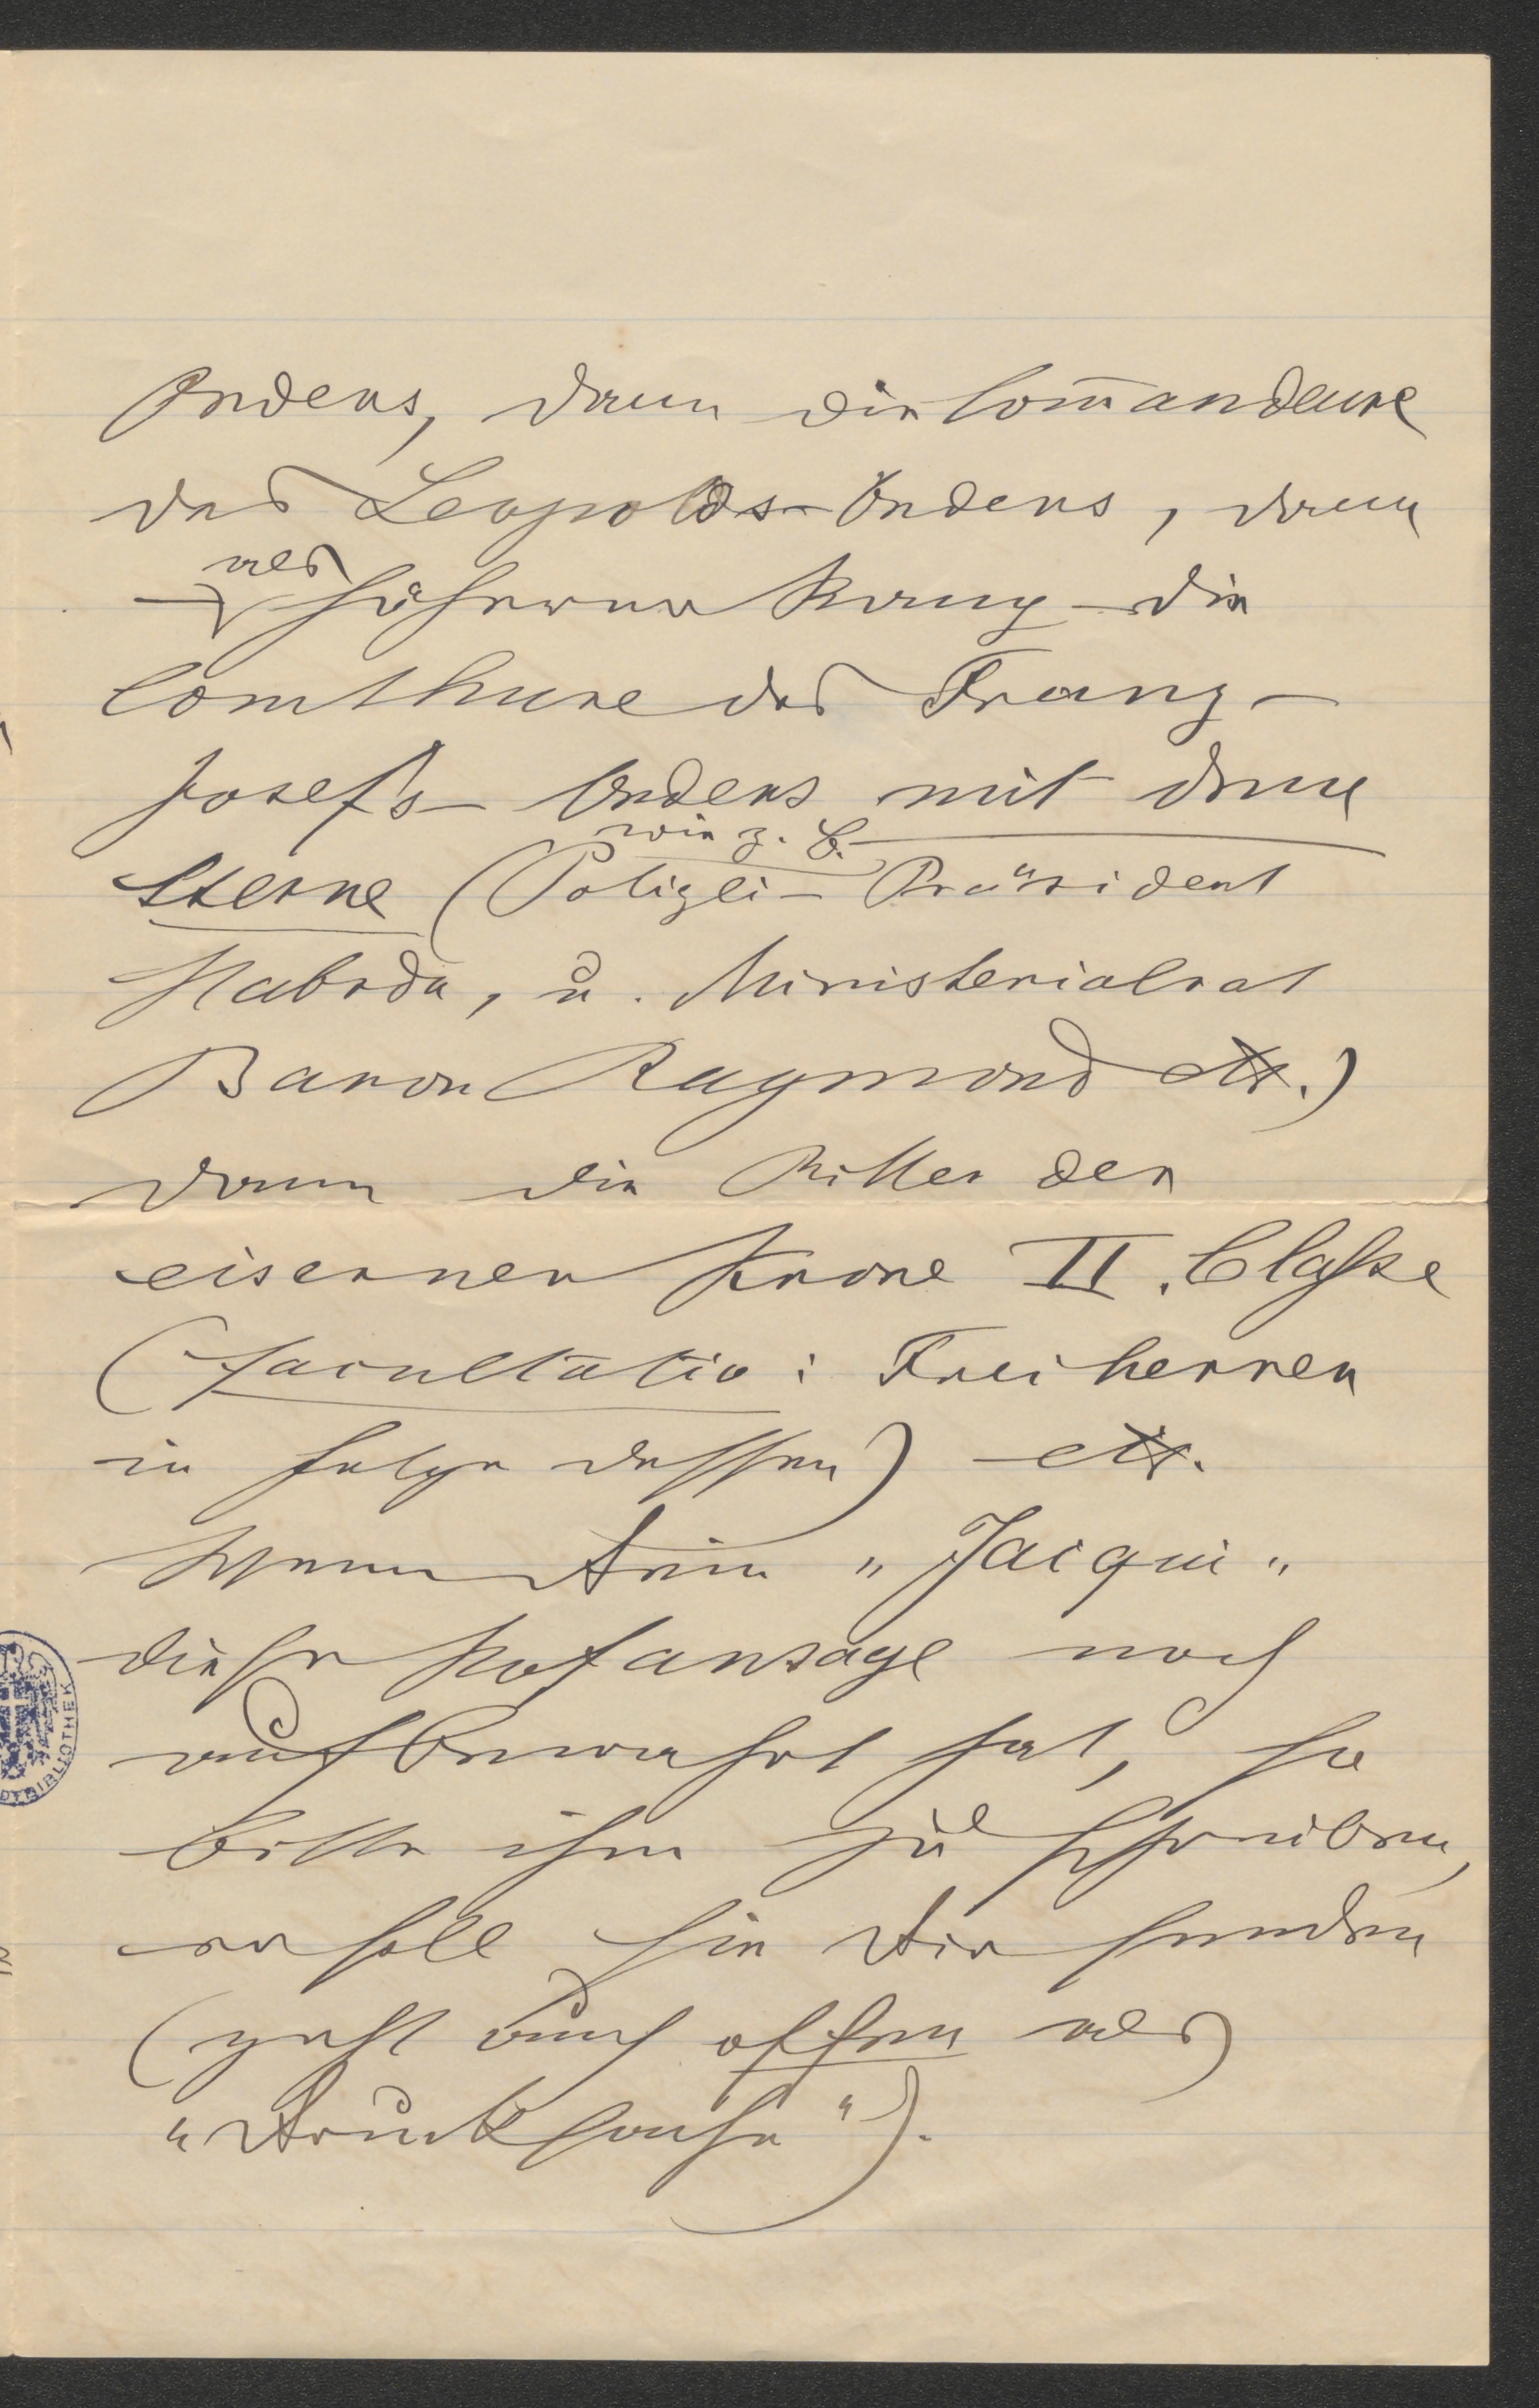 Ordens, dann die Com̄andeure
des Leopolds-Ordens, dann
als
— höherer Rang – die
Comthure des Franz-
Josefs- Ordens mit dem
wie z. B.
Sterne (Polizei- Präsident
Habrda, u. Ministerialrat
Baron Raymond etc.)
dann die Ritter der
eisernen Krone II. Classe
(facultativ: Freiherren
in folge dessen) etc.
Wenn Dein „Jacqui"
diese Hofansage noch
aufbewahrt hat, so
bitte ihm zu schreiben,
er soll sie Dir senden
(geht auch offen als
„Drucksache").